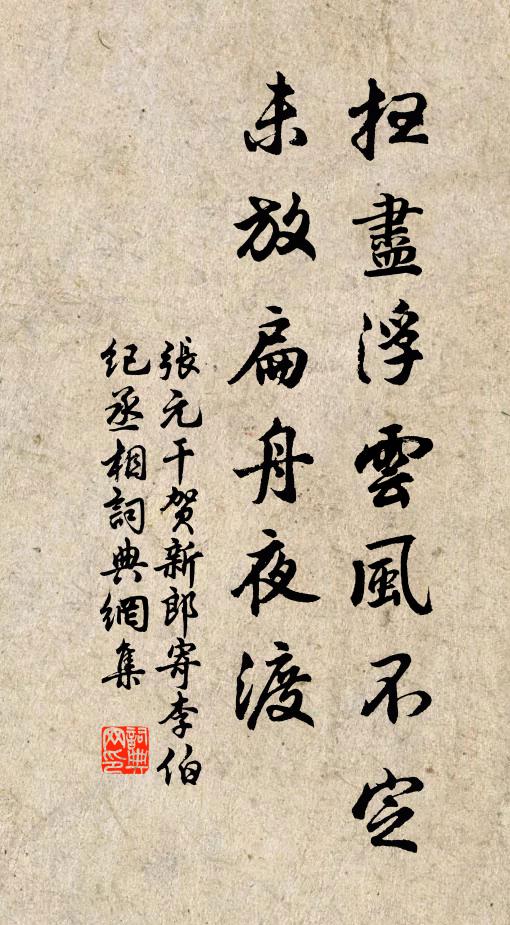 扫盡浮雲風不定
未放扁舟夜渡
張元干贺新郎寄李伯
紀丞相詞典網集
詞典
网印